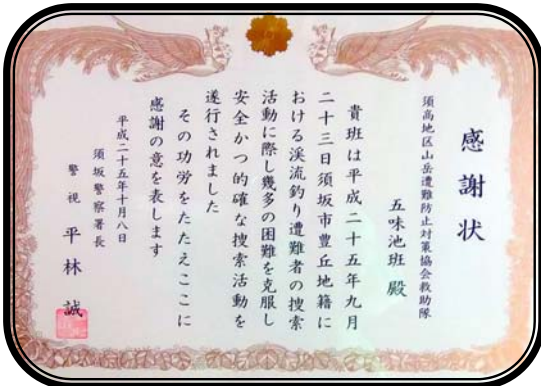 感謝状
須高地区山岳遭難防止対策協会救助隊
五味池班 殿
貴班は平成二十五年九月
二十三日須坂市豊丘地籍に
おける渓流釣り遭難者の捜索
活動に際し幾多の困難を克服し
安全かつ的確な捜索活動を
遂行されました
その功労をたたえここに
感謝の意を表します
平成二十五年十月八日
須坂警察署長
警視 平林 誠